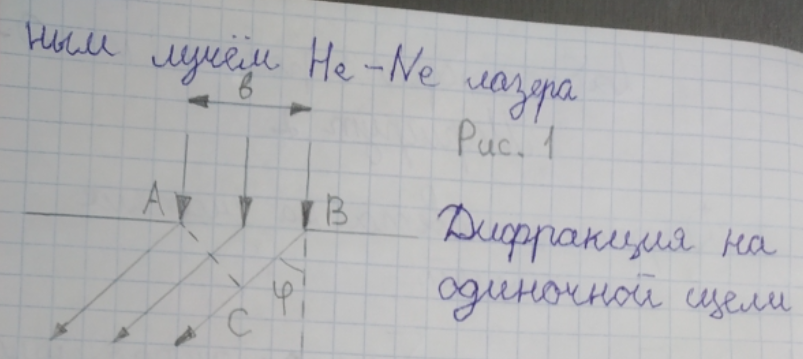 ным лучём He-Ne лазера
в
Рис. 1
A
B
Дифракция на
одиночной щели
φ
C